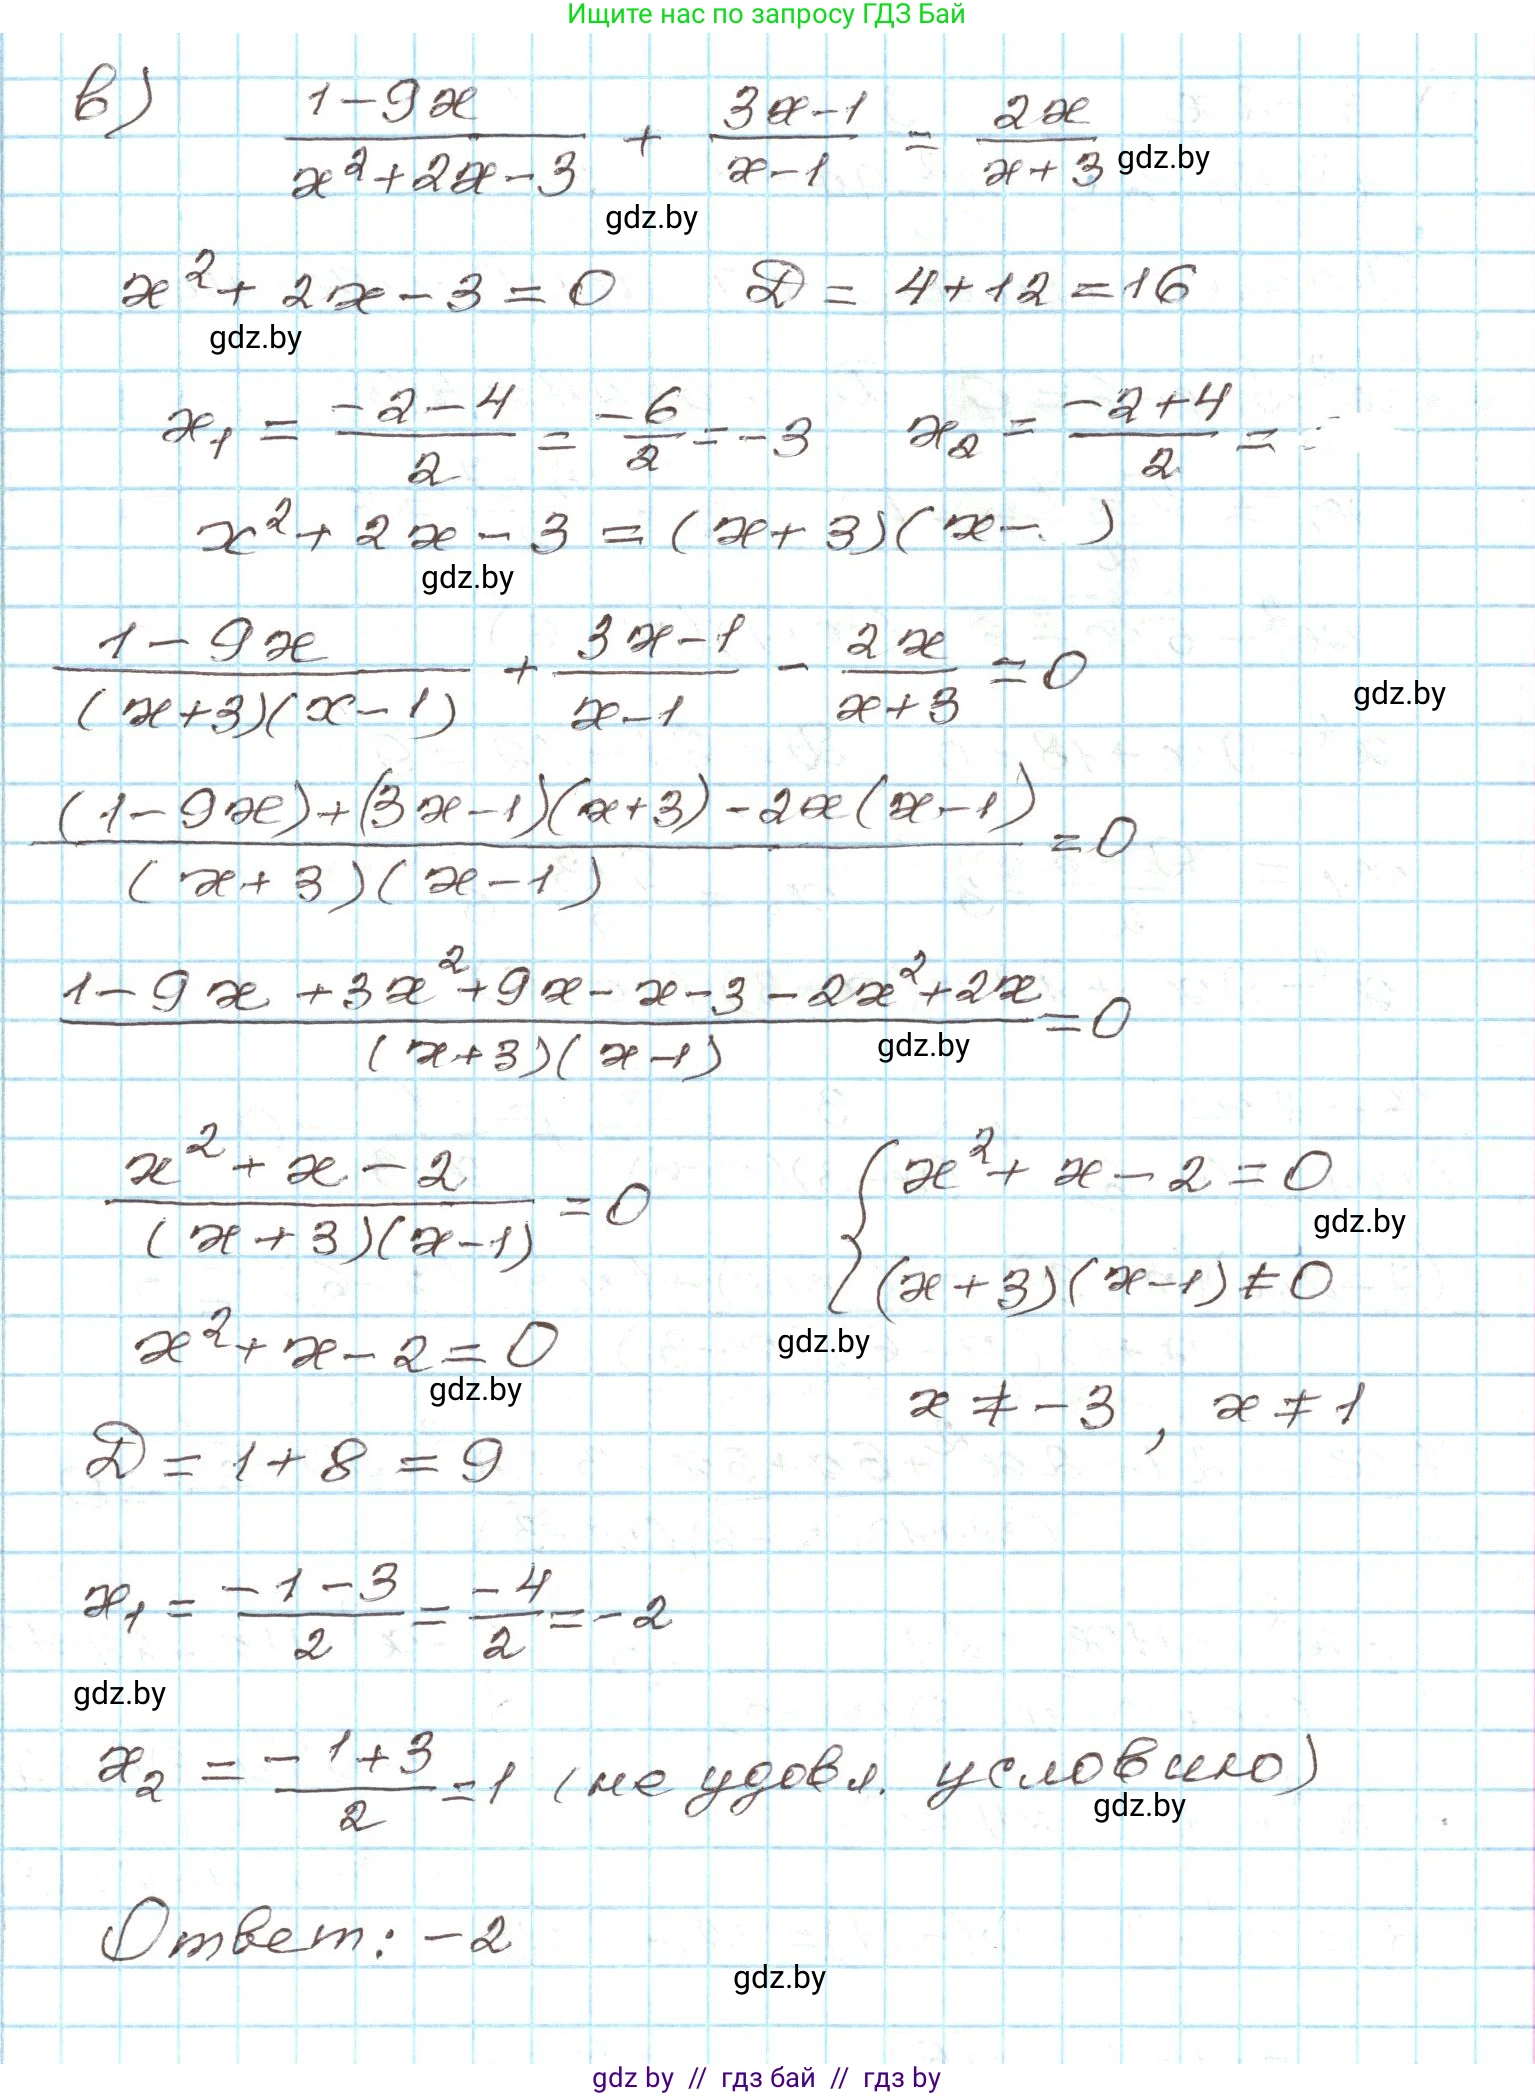 Ищите нас по запросу ГДЗ Бай
в) (1-9x)/(x²+2x-3) + (3x-1)/(x-1) = 2x/(x+3) gdz.by
gdz.by
x²+2x-3=0 D=4+12=16
gdz.by
x₁ = (-2-4)/2 = -6/2 = -3 x₂ = (-2+4)/2 =
x²+2x-3=(x+3)(x- )
gdz.by
(1-9x)/((x+3)(x-1)) + (3x-1)/(x-1) - 2x/(x+3) = 0
gdz.by
((1-9x)+(3x-1)(x+3)-2x(x-1))/((x+3)(x-1)) = 0
(1-9x+3x²+9x-x-3-2x²+2x)/((x+3)(x-1)) = 0
gdz.by
(x²+x-2)/((x+3)(x-1)) = 0 { x²+x-2=0
gdz.by
(x+3)(x-1)≠0
gdz.by
x²+x-2=0
gdz.by
x≠-3, x≠1
D=1+8=9
x₁ = (-1-3)/2 = -4/2 = -2
gdz.by
x₂ = (-1+3)/2 = 1 (не удовл. условию)
gdz.by
Ответ: -2
gdz.by
gdz by // гдз бай // гдз by